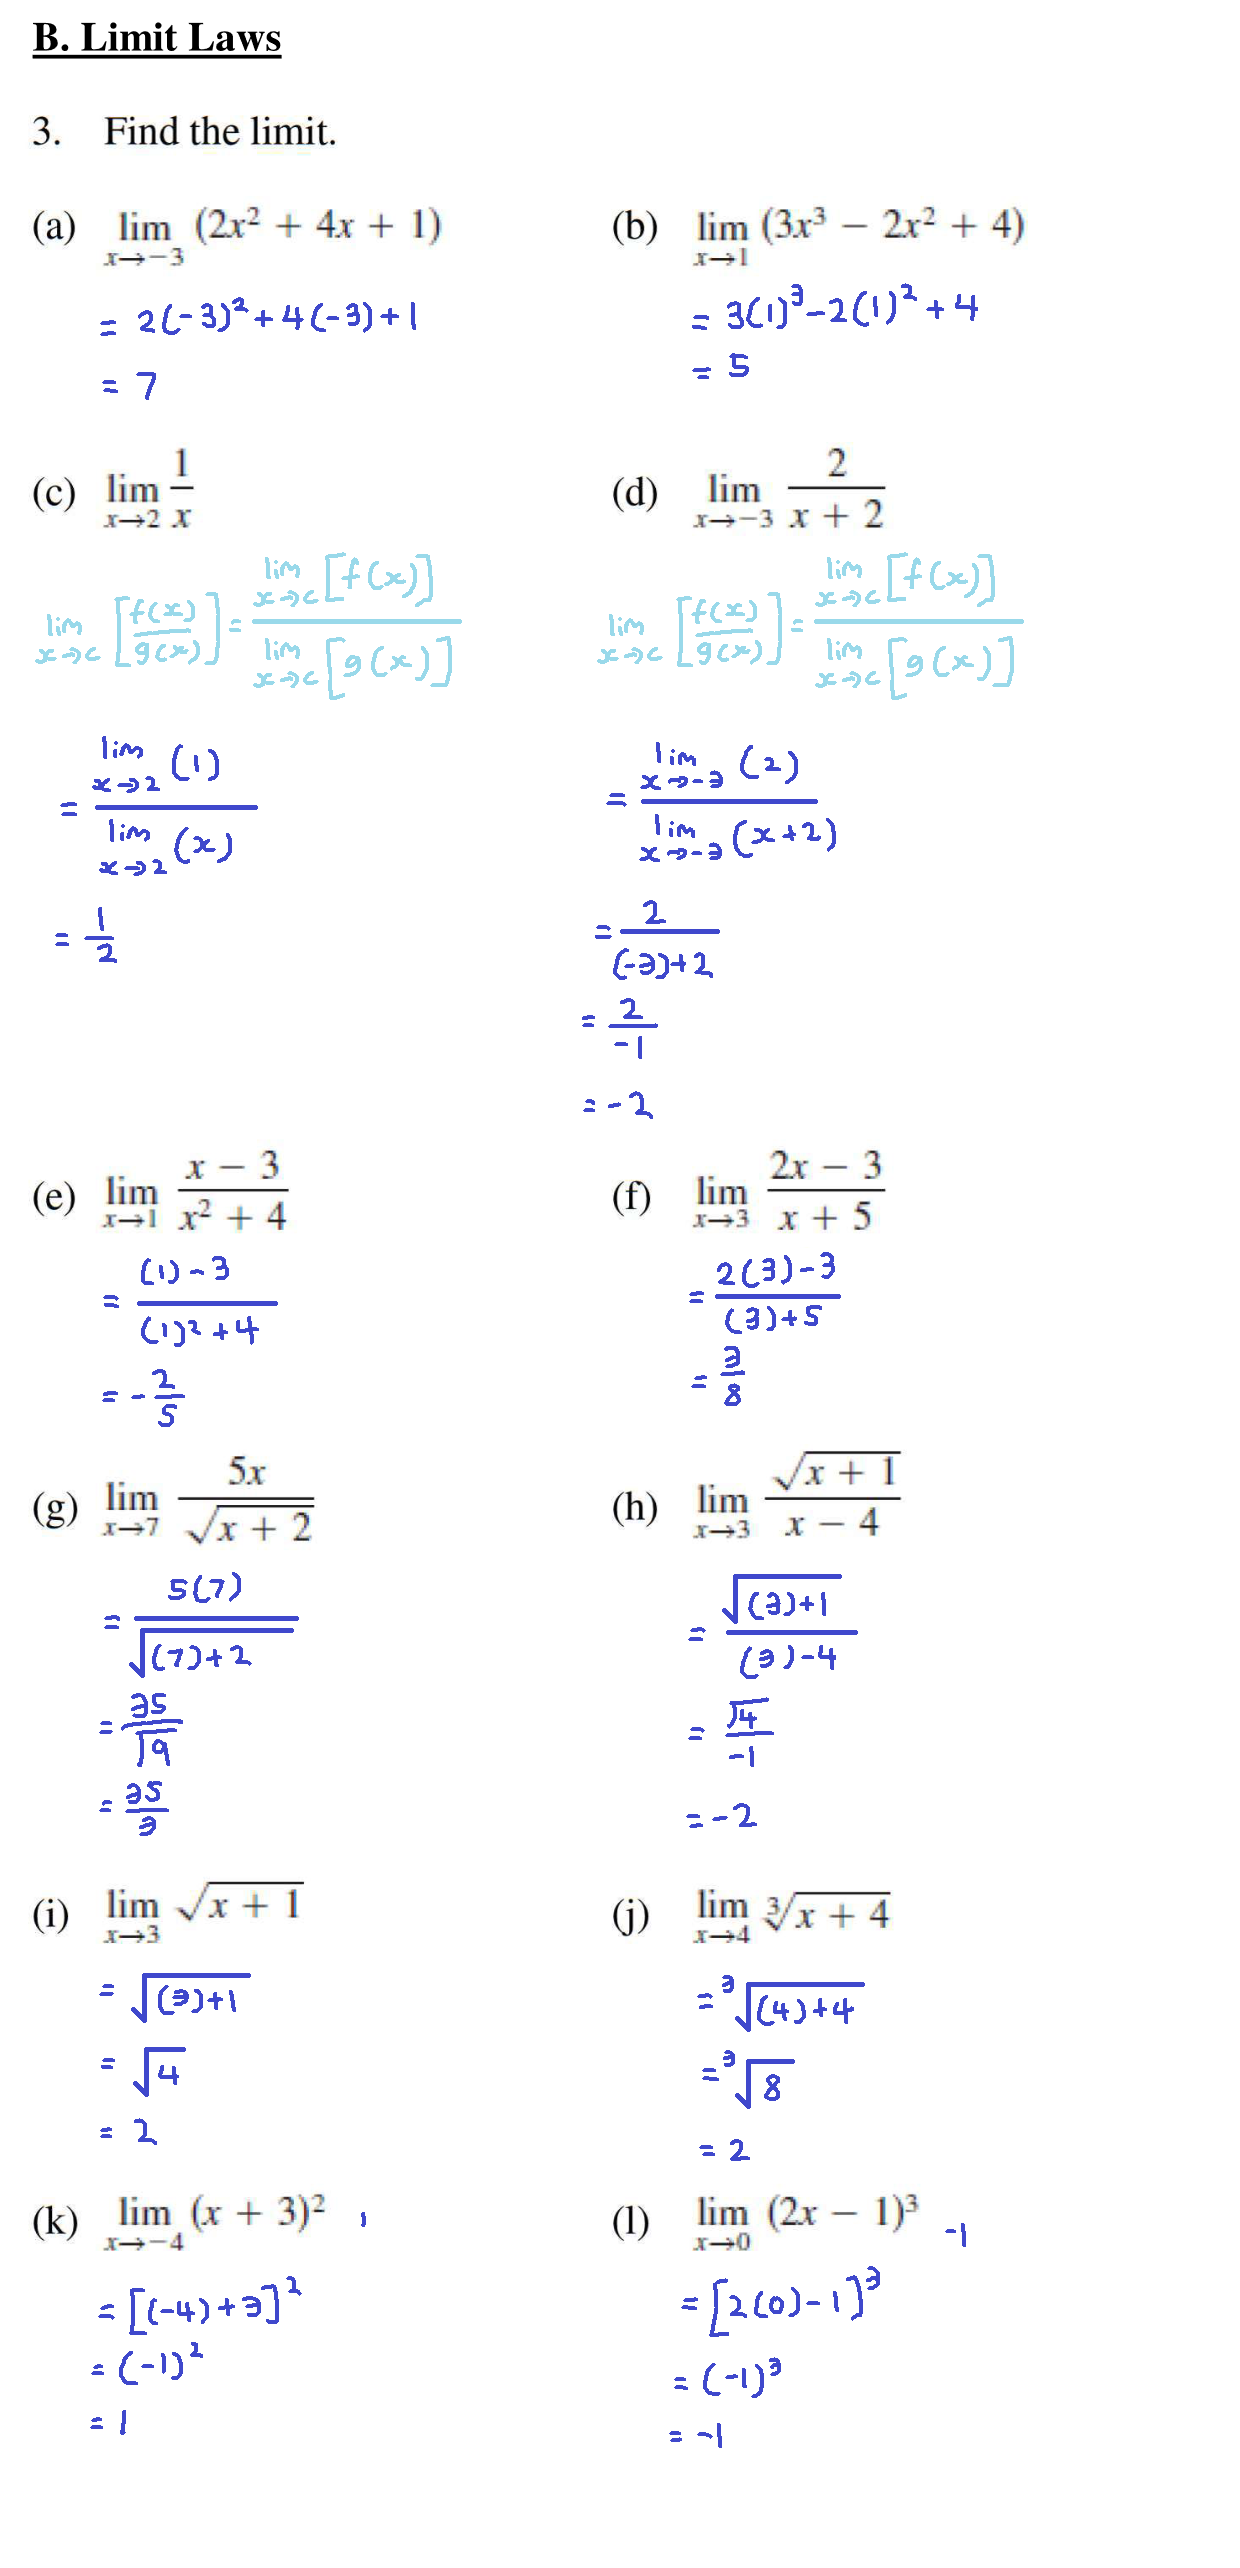 B. Limit Laws
3. Find the limit.
(a) lim x→−3 (2x² + 4x + 1)
= 2(-3)² + 4(-3) + 1
= 7
(b) lim x→1 (3x³ − 2x² + 4)
= 3(1)³ - 2(1)² + 4
= 5
(c) lim x→2 1/x
lim x→c [f(x)/g(x)] = lim x→c [f(x)] / lim x→c [g(x)]
= lim x→2 (1) / lim x→2 (x)
= 1/2
(d) lim x→−3 2/(x + 2)
lim x→c [f(x)/g(x)] = lim x→c [f(x)] / lim x→c [g(x)]
= lim x→-3 (2) / lim x→-3 (x+2)
= 2/((-3)+2)
= 2/-1
= -2
(e) lim x→1 (x − 3)/(x² + 4)
= ((1)-3)/((1)²+4)
= -2/5
(f) lim x→3 (2x − 3)/(x + 5)
= (2(3)-3)/((3)+5)
= 3/8
(g) lim x→7 5x/√(x + 2)
= 5(7)/√((7)+2)
= 35/√9
= 35/3
(h) lim x→3 √(x + 1)/(x − 4)
= √((3)+1)/((3)-4)
= √4/-1
= -2
(i) lim x→3 √(x + 1)
= √((3)+1)
= √4
= 2
(j) lim x→4 ∛(x + 4)
= ³√((4)+4)
= ³√8
= 2
(k) lim x→−4 (x + 3)² 1
= [(-4)+3]²
= (-1)²
= 1
(l) lim x→0 (2x − 1)³ -1
= [2(0)-1]³
= (-1)³
= -1